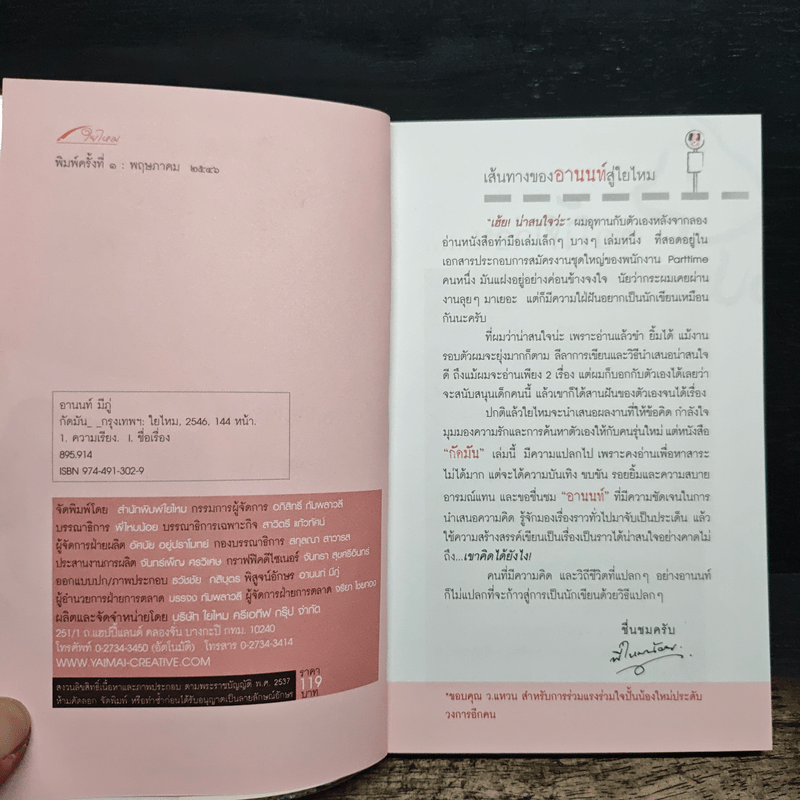 ใยไหม
พิมพ์ครั้งที่ ๑ : พฤษภาคม ๒๕๔๖
อานนท์ มีภู่
กัดมัน_ _กรุงเทพฯ: ใยไหม, 2546, 144 หน้า.
1. ความเรียง. I. ชื่อเรื่อง
895.914
ISBN 974-491-302-9
จัดพิมพ์โดย สำนักพิมพ์ใยไหม กรรมการผู้จัดการ อภิสิทธิ์ กัมพลาวลี
บรรณาธิการ พี่ไหมน้อย บรรณาธิการเฉพาะกิจ สาวิตรี แก้วทัศน์
ผู้จัดการฝ่ายผลิต อัศนัย อยู่ปราโมทย์ กองบรรณาธิการ สกุลณา สาวารส
ประสานงานการผลิต จันทร์เพ็ญ ศรวิเศษ กราฟฟิคดีไซเนอร์ จันทรา สุขศรีอินทร์
ออกแบบปก/ภาพประกอบ ธวัชชัย กสิบุตร พิสูจน์อักษร อานนท์ มีภู่
ผู้อำนวยการฝ่ายการตลาด บรรจง กัมพลาวลี ผู้จัดการฝ่ายการตลาด จริยา ไชยทอง
ผลิตและจัดจำหน่ายโดย บริษัท ใยไหม ครีเอทีฟ กรุ๊ป จำกัด
251/1 ถ.แฮปปี้แลนด์ คลองจั่น บางกะปิ กทม. 10240
โทรศัพท์ 0-2734-3450 (อัตโนมัติ) โทรสาร 0-2734-3414
WWW.YAIMAI-CREATIVE.COM
ราคา
119
บาท
สงวนลิขสิทธิ์เนื้อหาและภาพประกอบ ตามพระราชบัญญัติ พ.ศ. 2537
ห้ามคัดลอก จัดพิมพ์ หรือทำซ้ำก่อนได้รับอนุญาตเป็นลายลักษณ์อักษร
เส้นทางของอานนท์สู่ใยไหม
"เฮ้ย! น่าสนใจว่ะ" ผมอุทานกับตัวเองหลังจากลอง
อ่านหนังสือทำมือเล่มเล็กๆ บางๆ เล่มหนึ่ง ที่สอดอยู่ใน
เอกสารประกอบการสมัครงานชุดใหญ่ของพนักงาน Parttime
คนหนึ่ง มันแฝงอยู่อย่างค่อนข้างจงใจ นัยว่ากระผมเคยผ่าน
งานลุยๆ มาเยอะ แต่ก็มีความใฝ่ฝันอยากเป็นนักเขียนเหมือน
กันนะครับ
ที่ผมว่าน่าสนใจน่ะ เพราะอ่านแล้วขำ ยิ้มได้ แม้งาน
รอบตัวผมจะยุ่งมากก็ตาม ลีลาการเขียนและวิธีนำเสนอน่าสนใจ
ดี ถึงแม้ผมจะอ่านเพียง 2 เรื่อง แต่ผมก็บอกกับตัวเองได้เลยว่า
จะสนับสนุนเด็กคนนี้ แล้วเขาก็ได้สานฝันของตัวเองจนได้เรื่อง
ปกติแล้วใยไหมจะนำเสนอผลงานที่ให้ข้อคิด กำลังใจ
มุมมองความรักและการค้นหาตัวเองให้กับคนรุ่นใหม่ แต่หนังสือ
"กัดมัน" เล่มนี้ มีความแปลกไป เพราะคงอ่านเพื่อหาสาระ
ไม่ได้มาก แต่จะได้ความบันเทิง ขบขัน รอยยิ้มและความสบาย
อารมณ์แทน และขอชื่นชม "อานนท์" ที่มีความชัดเจนในการ
นำเสนอความคิด รู้จักมองเรื่องราวทั่วไปมาจับเป็นประเด็น แล้ว
ใช้ความสร้างสรรค์เขียนเป็นเรื่องเป็นราวได้น่าสนใจอย่างคาดไม่
ถึง...เขาคิดได้ยังไง!
คนที่มีความคิด และวิถีชีวิตที่แปลกๆ อย่างอานนท์
ก็ไม่แปลกที่จะก้าวสู่การเป็นนักเขียนด้วยวิธีแปลกๆ
ชื่นชมครับ
พี่ไหมน้อย.
*ขอบคุณ ว.แหวน สำหรับการร่วมแรงร่วมใจปั้นน้องใหม่ประดับ
วงการอีกคน